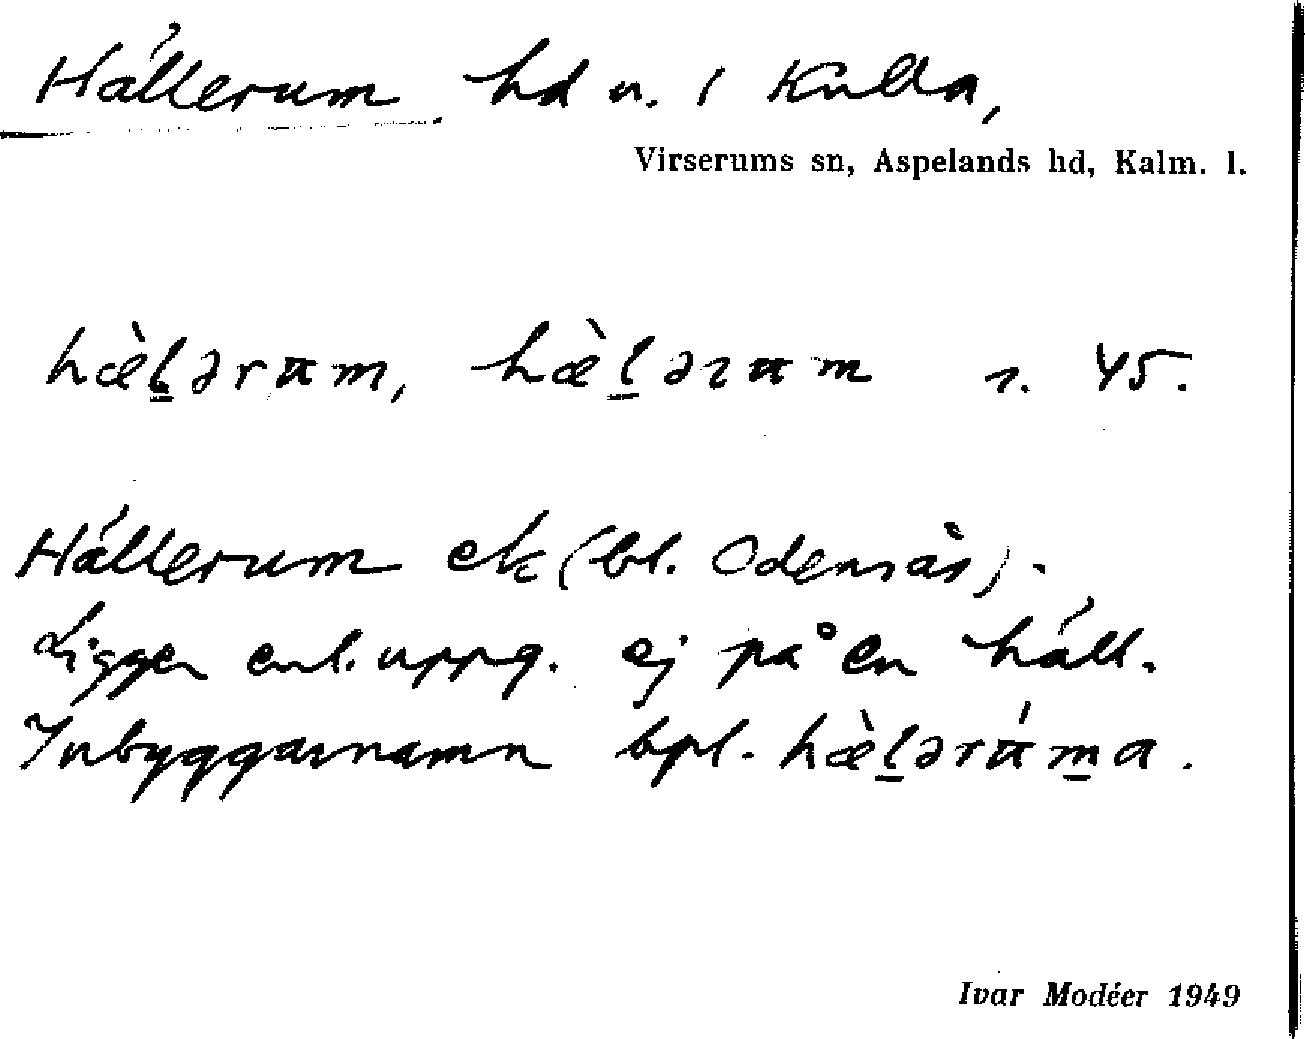 Hällerum hd n. 1 Kulla,
Virserums sn, Aspelands hd, Kalm. l.
hæ̀l̲ərum, hæ̀l̲əɿum s. 45.
Hällerum ek (bl. Odensås).
Ligger enl. uppg. ej på en häll.
Inbyggarnamn bpl. hæ̀l̲ərúm̲a.
Ivar Modéer 1949